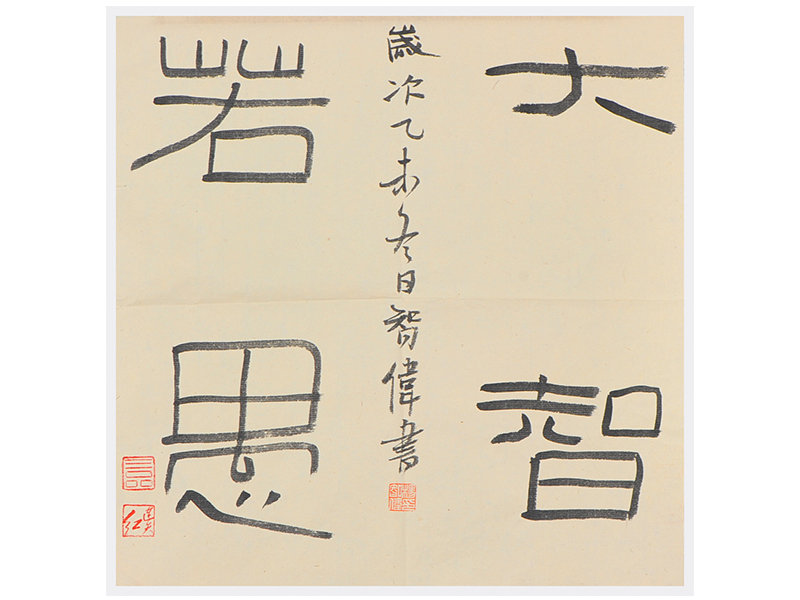 大智
若愚
歲次乙未冬日智偉書